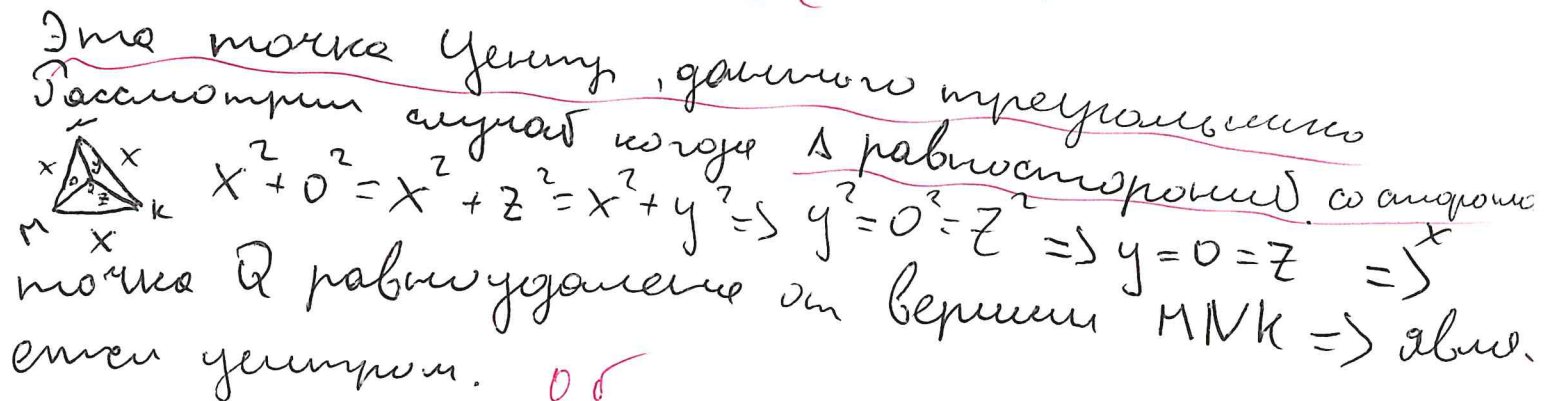 Эта точка Центр, данного треугольника
Рассмотрим случай когда Δ равносторонний. со стороной x
N x x y o Q z M x K
x² + o² = x² + z² = x² + y² => y² = o² = z² => y = o = z =>
точка Q равноудалена от вершин MNK => явля.
ется центром. 0 б